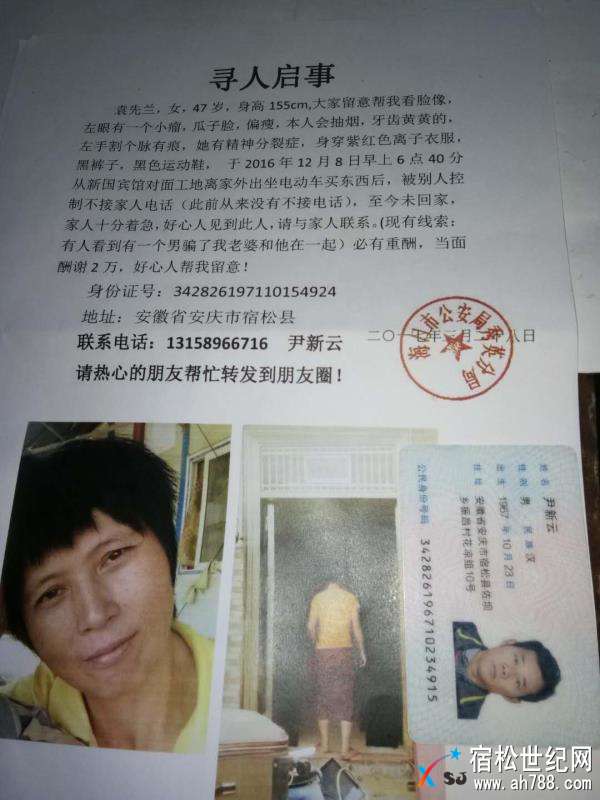 寻人启事
袁先兰，女，47岁，身高155cm,大家留意帮我看脸像，
左眼有一个小瘤，瓜子脸，偏瘦，本人会抽烟，牙齿黄黄的，
左手割个脉有痕，她有精神分裂症，身穿紫红色离子衣服，
黑裤子，黑色运动鞋， 于2016年12月8日早上6点40分
从新国宾馆对面工地离家外出坐电动车买东西后，被别人控
制不接家人电话（此前从来没有不接电话），至今未回家，
家人十分着急，好心人见到此人，请与家人联系。(现有线索：
有人看到有一个男骗了我老婆和他在一起）必有重酬，当面
酬谢2万，好心人帮我留意！
身份证号：342826197110154924
地址：安徽省安庆市宿松县
二〇一七年 月二 八日
联系电话：13158966716 尹新云
海口市公安局秀英分局
请热心的朋友帮忙转发到朋友圈！
姓名 尹新云
性别 男 民族 汉
出生 1967年10月23日
住址 安徽省安庆市宿松县佐坝
乡 昌村花凉组10号
公民身份号码 342826196710234915
SJ
宿松世纪网
www.ah788.com